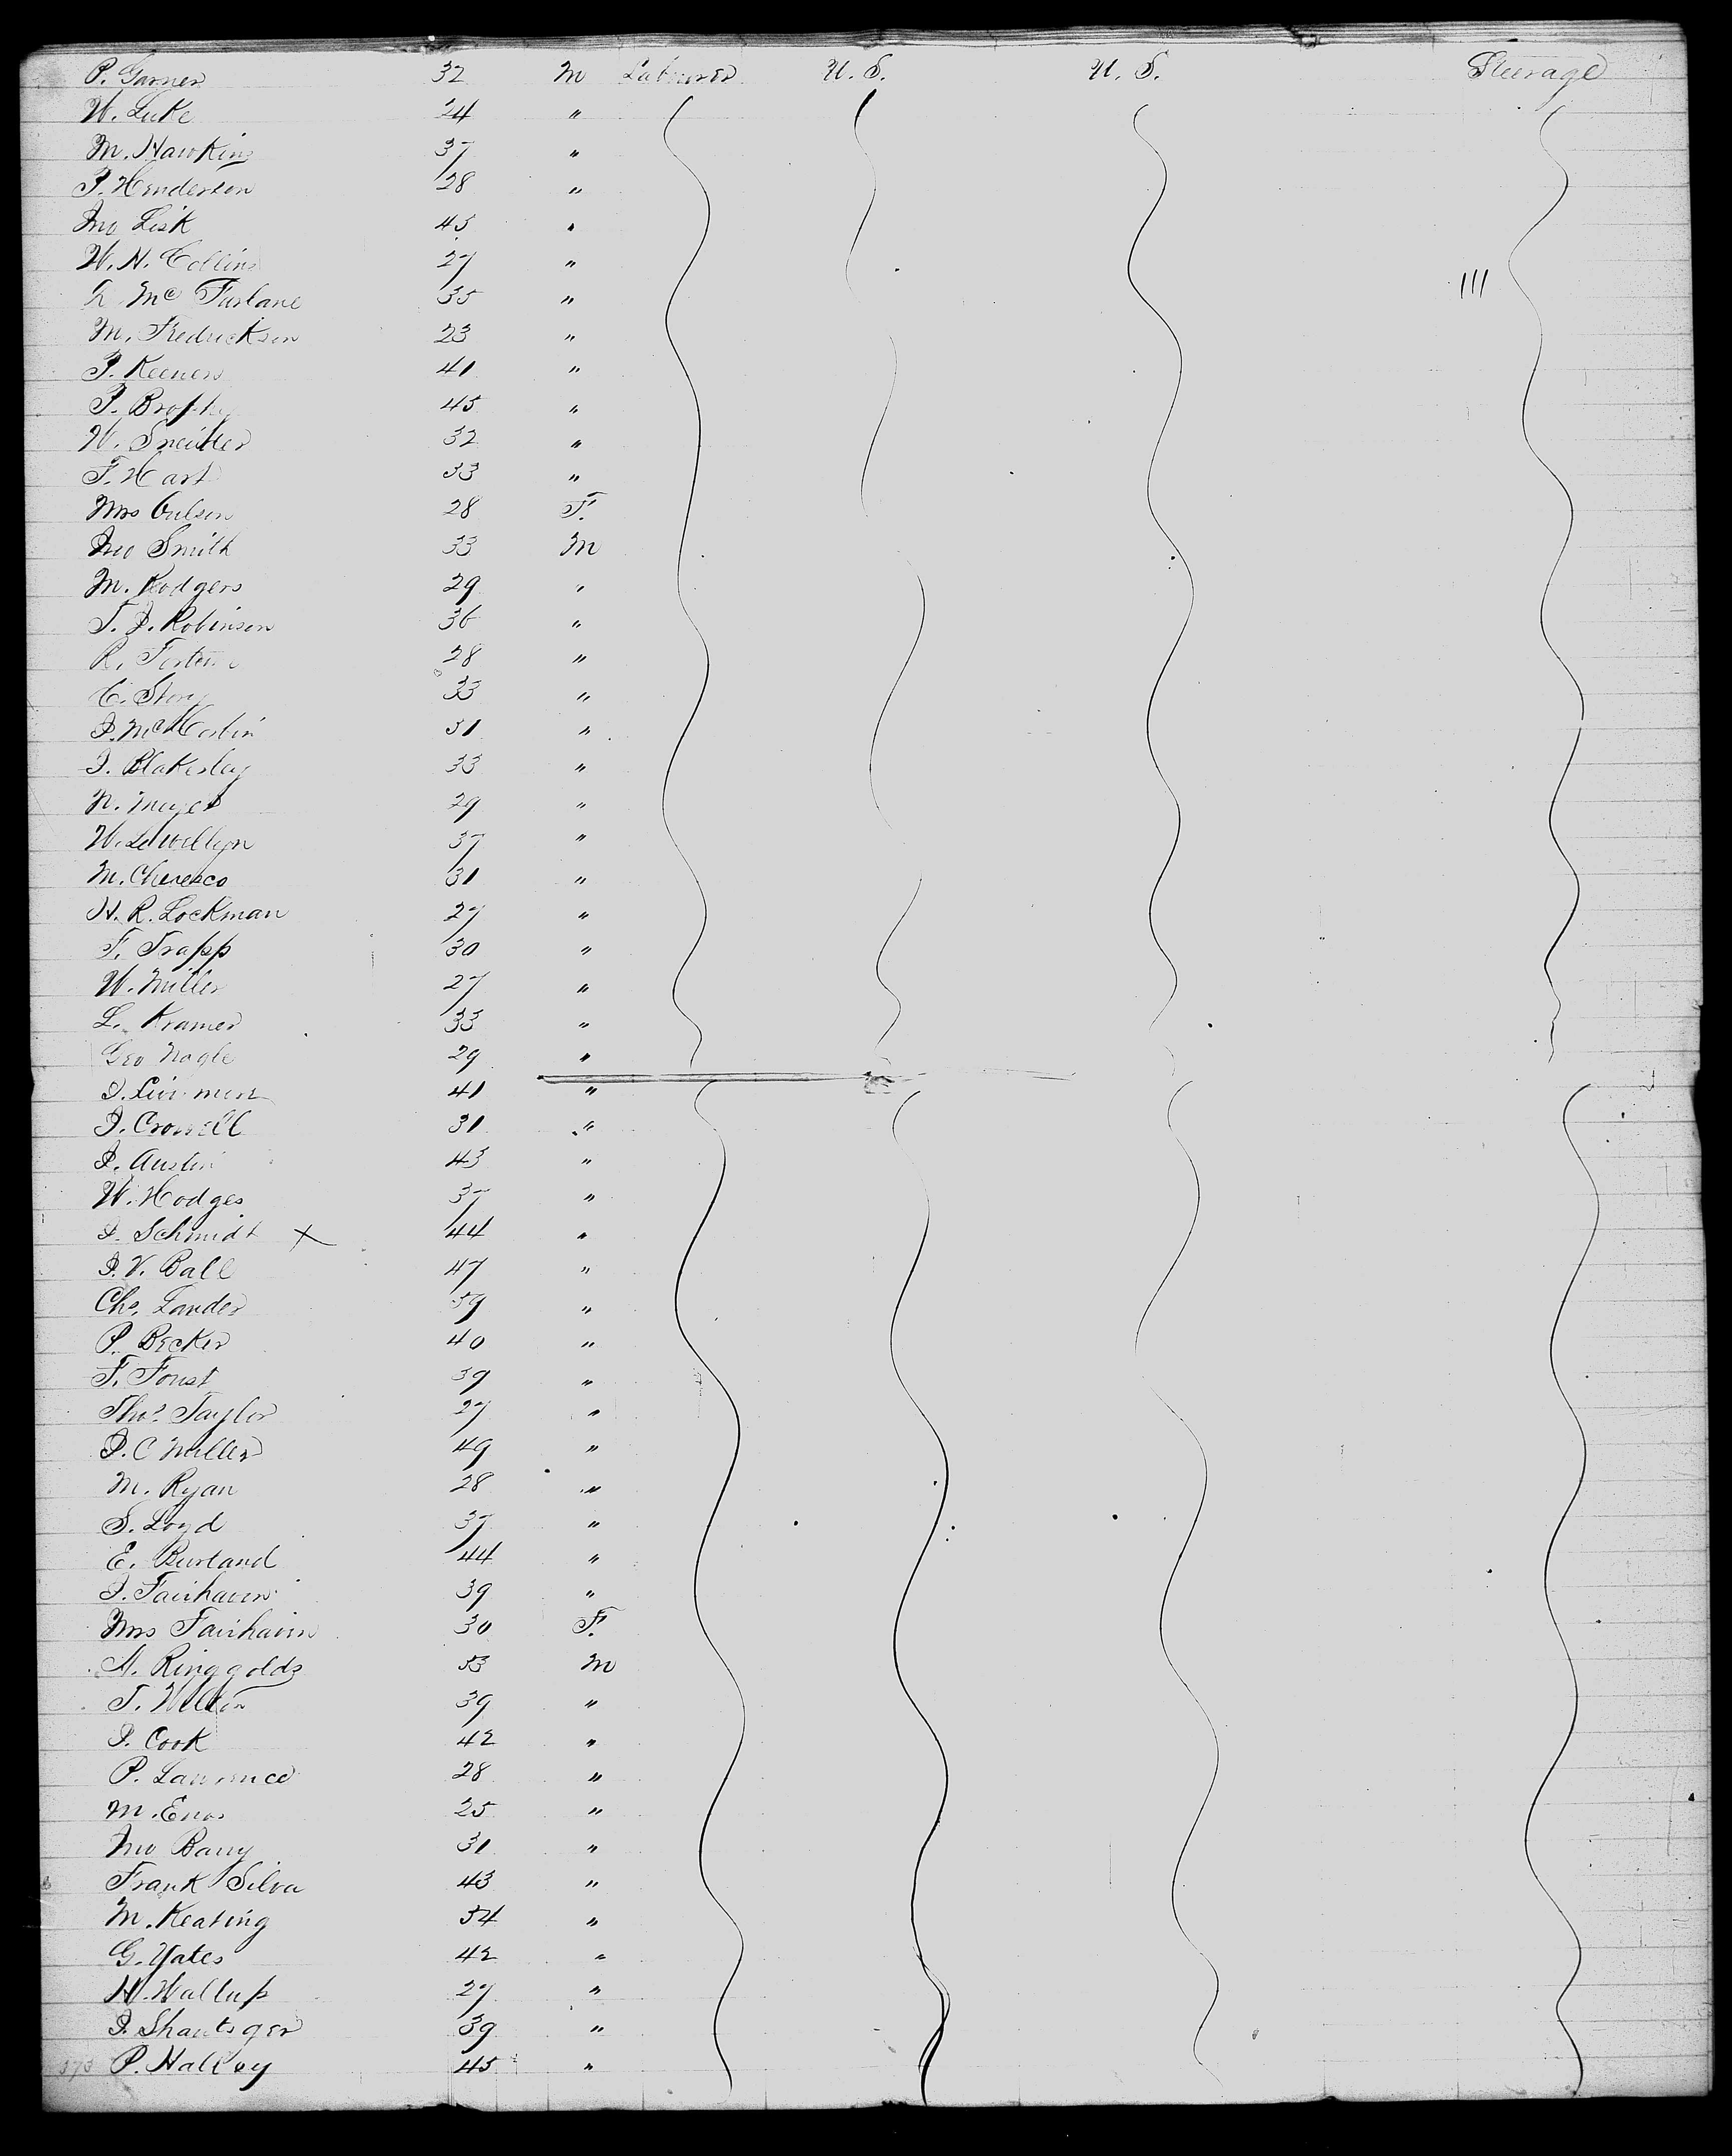 P. Garner 32 M Labourer U. S. U. S. Steerage
W. Luke 24 "
M. Hawkins 37 "
P. Henderson 28 "
Jno Lisk 45 "
W. H. Collins 27 "
Mc Farlane 35 " III
M. Fredrickson 23 "
P. Keener 41 "
P. Brophy 45 "
W. 32 "
F. Hart 33 "
Mrs 28 F.
Jno Smith 33 M
M. Rodgers 29 "
T. J. Robinson 36 "
R. 28 "
C. Story 33 "
J. 31 "
J. Blakesley 33 "
N. Meyer 29 "
W. Lewellyn 37 "
M. 31 "
H. R. Lockman 27 "
F. Trapp 30 "
W. Miller 27 "
L. Kramer 33 "
Geo Nagle 29 "
J. 41 "
J. Crowell 31 "
J. Austin 43 "
W. Hodges 37 "
J. Schmidt X 44 "
J. V. Ball 47 "
Chs. Lander 39 "
P. Becker 40 "
F. Foust 39 "
Thos. Taylor 27 "
J. C Miller 49 "
M. Ryan 28 "
S. Loyd 37 "
E. Burland 44 "
J. Fairhaven 39 "
Mrs Fairhaven 30 F.
A. Ringgolds 53 M
T. 39 "
J. Cook 42 "
P. Lawrence 28 "
M. Enos 25 "
Jno Barry 31 "
Frank Silva 43 "
M. Keating 54 "
G. Yates 42 "
H. Wallup 27 "
J. 39 "
373 P. Halley 45 "